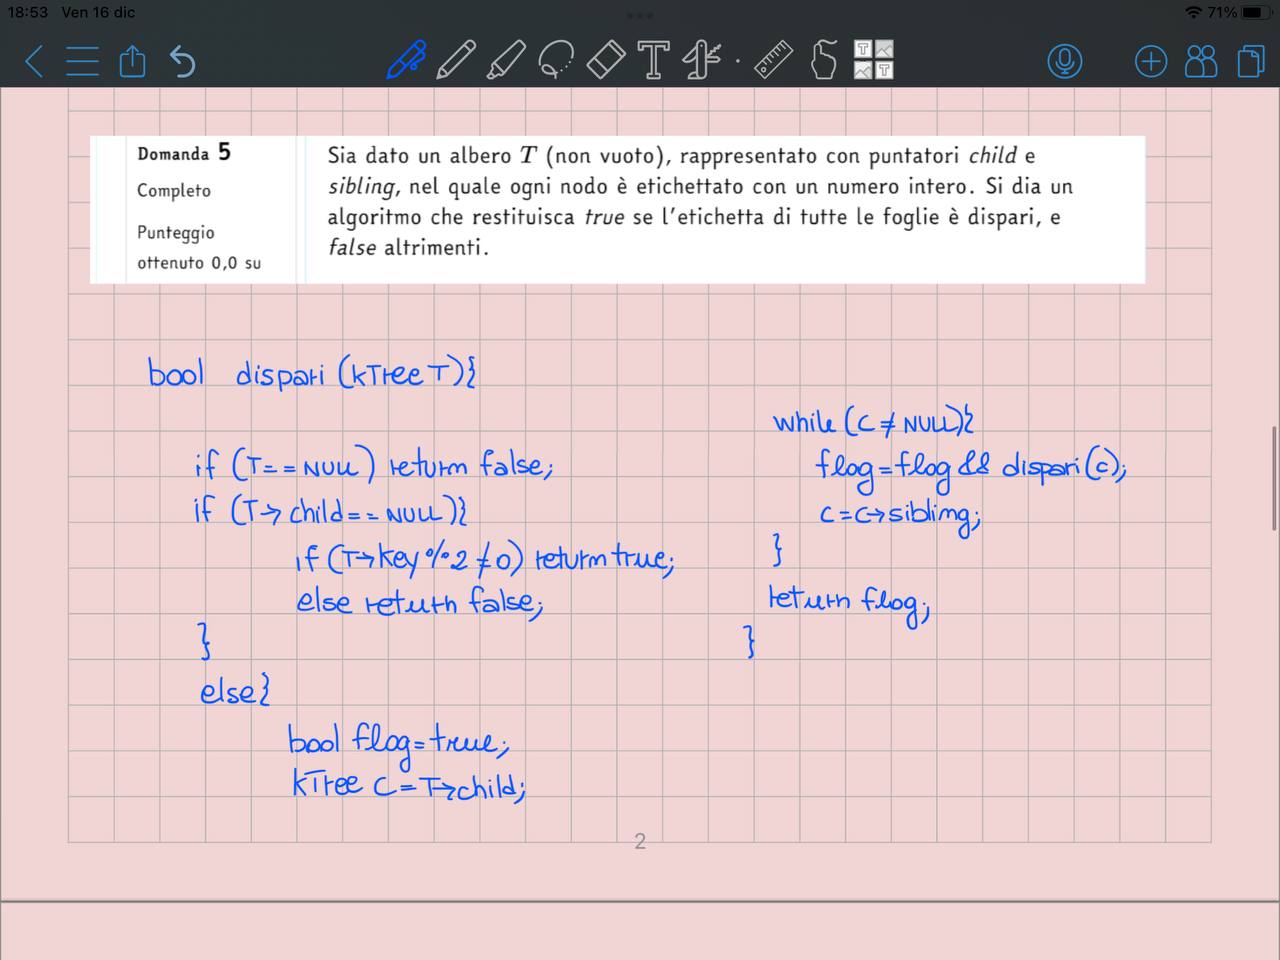 18:53 Ven 16 dic
71%
Domanda 5
Completo
Punteggio
ottenuto 0,0 su
Sia dato un albero T (non vuoto), rappresentato con puntatori child e
sibling, nel quale ogni nodo è etichettato con un numero intero. Si dia un
algoritmo che restituisca true se l'etichetta di tutte le foglie è dispari, e
false altrimenti.
bool dispari (kTree T){
if (T==NULL) return false;
if (T→child==NULL){
if (T→key%2≠0) return true;
else return false;
}
else{
bool flog=true;
kTree C=T→child;
while (C≠NULL){
flog=flog && dispari(c);
c=c→sibling;
}
return flog;
}
2